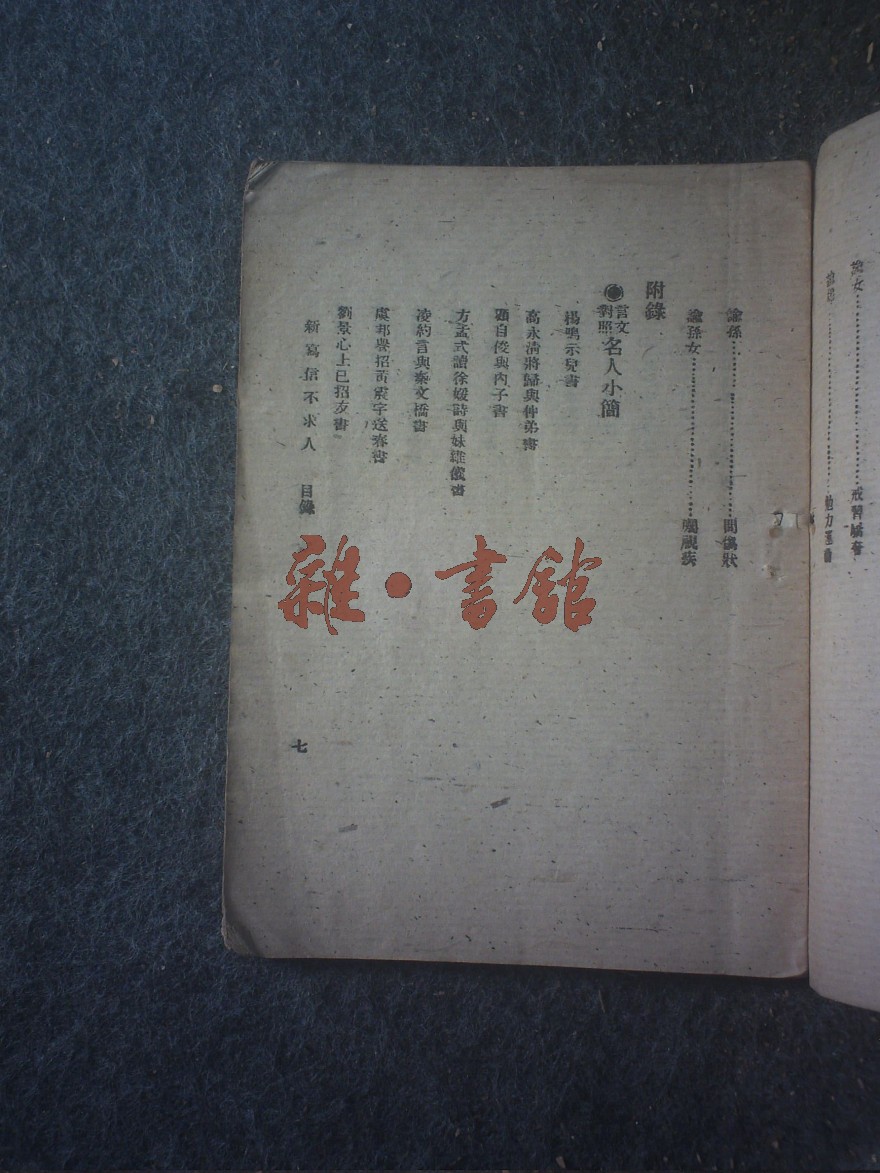 諭女……戒習驕奢
諭孫……問傷狀
諭孫女……囑服藥
附錄
言文對照 名人小簡
楊鳴示兒書
高永清將歸與仲弟書
顧自俊與內子書
方孟式讀徐媛詩與妹維儀書
凌約言與秦文橋書
虞邦譽招黃震宇送春書
劉景心上巳招友書
新寫信不求人 目錄
七
雜·書館